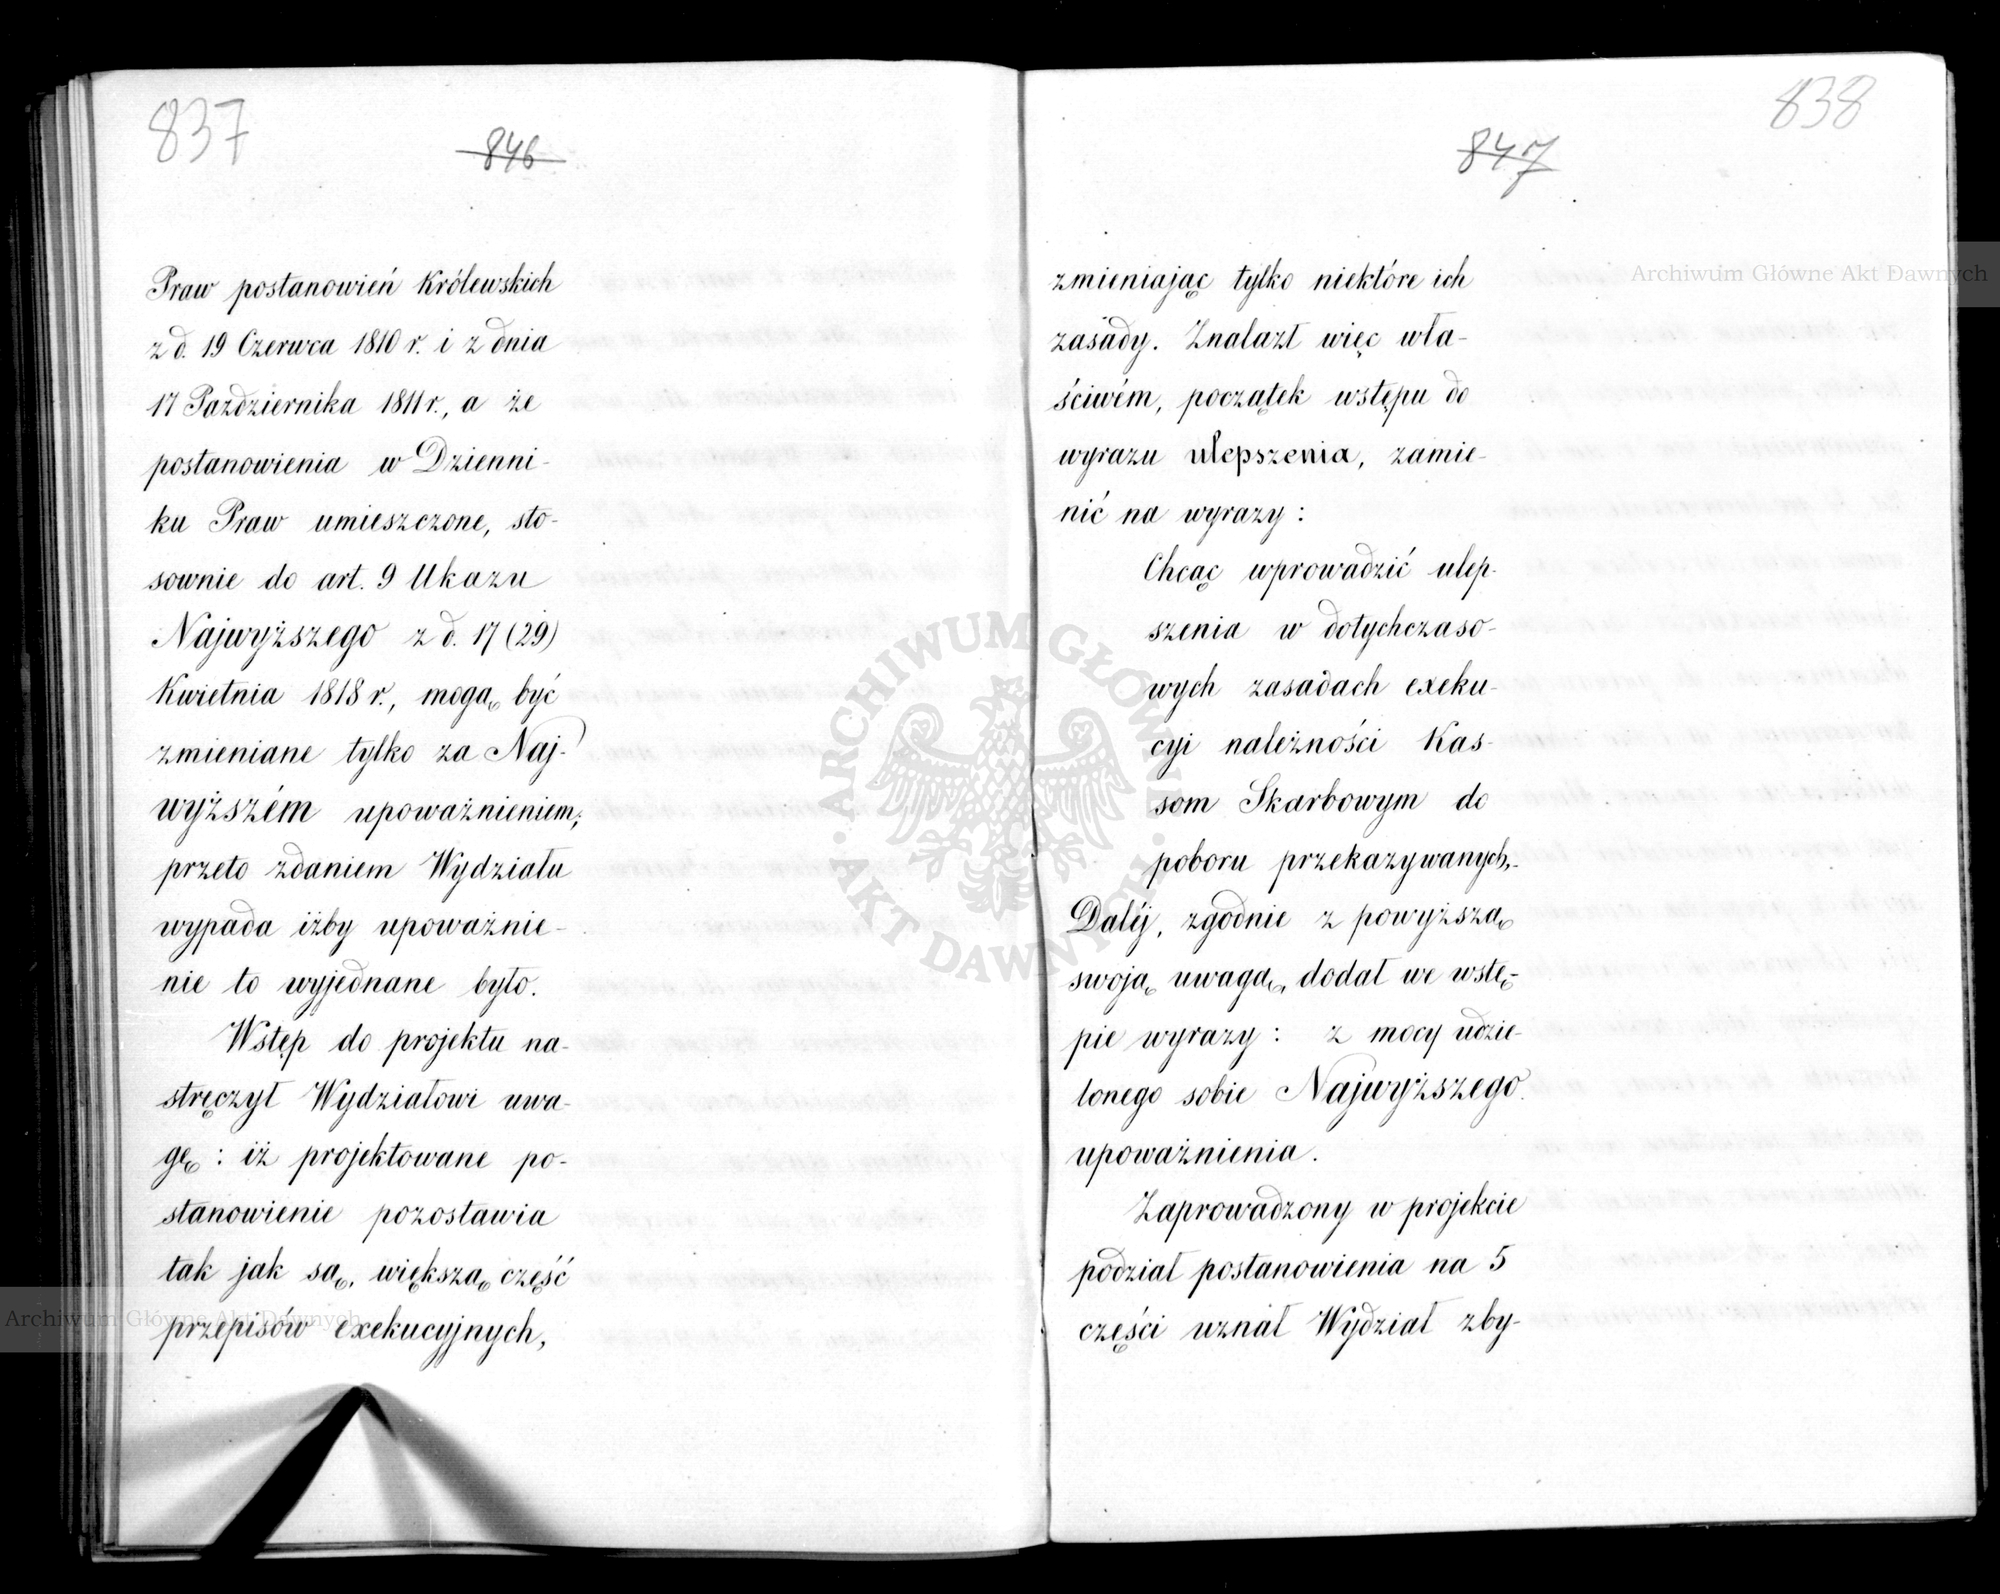 837
846
Praw postanowień Królewskich
z d. 19 Czerwca 1810 r. i z dnia
17 Października 1811 r., a że
postanowienia w Dzienni-
ku Praw umieszczone, sto-
sownie do art. 9 Ukazu
Najwyższego z d. 17 (29)
Kwietnia 1818 r., mogą być
zmieniane tylko za Naj-
wyższém upoważnieniem;
przeto zdaniem Wydziału
wypada iżby upoważnie-
nie to wyjednane było.
Wstęp do projektu na-
stręczył Wydziałowi uwa-
gę: iż projektowane po-
stanowienie pozostawia
tak jak są, większą część
przepisów exekucyjnych,
838
847
zmieniając tylko niektóre ich
zasady. Znalazł więc wła-
ściwém, początek wstępu do
wyrazu ulepszenia, zamie-
nić na wyrazy:
Chcąc wprowadzić ulep-
szenia w dotychczaso-
wych zasadach exeku-
cyi należności Kas-
som Skarbowym do
poboru przekazywanych,-
Daléj, zgodnie z powyższą
swoją uwagą, dodał we wstę-
pie wyrazy: z mocy udzie-
lonego sobie Najwyższego
upoważnienia.
Zaprowadzony w projekcie
podział postanowienia na 5
części uznał Wydział zby-
Archiwum Główne Akt Dawnych
Archiwum Główne Akt Dawnych
ARCHIWUM GŁÓWNE AKT DAWNYCH